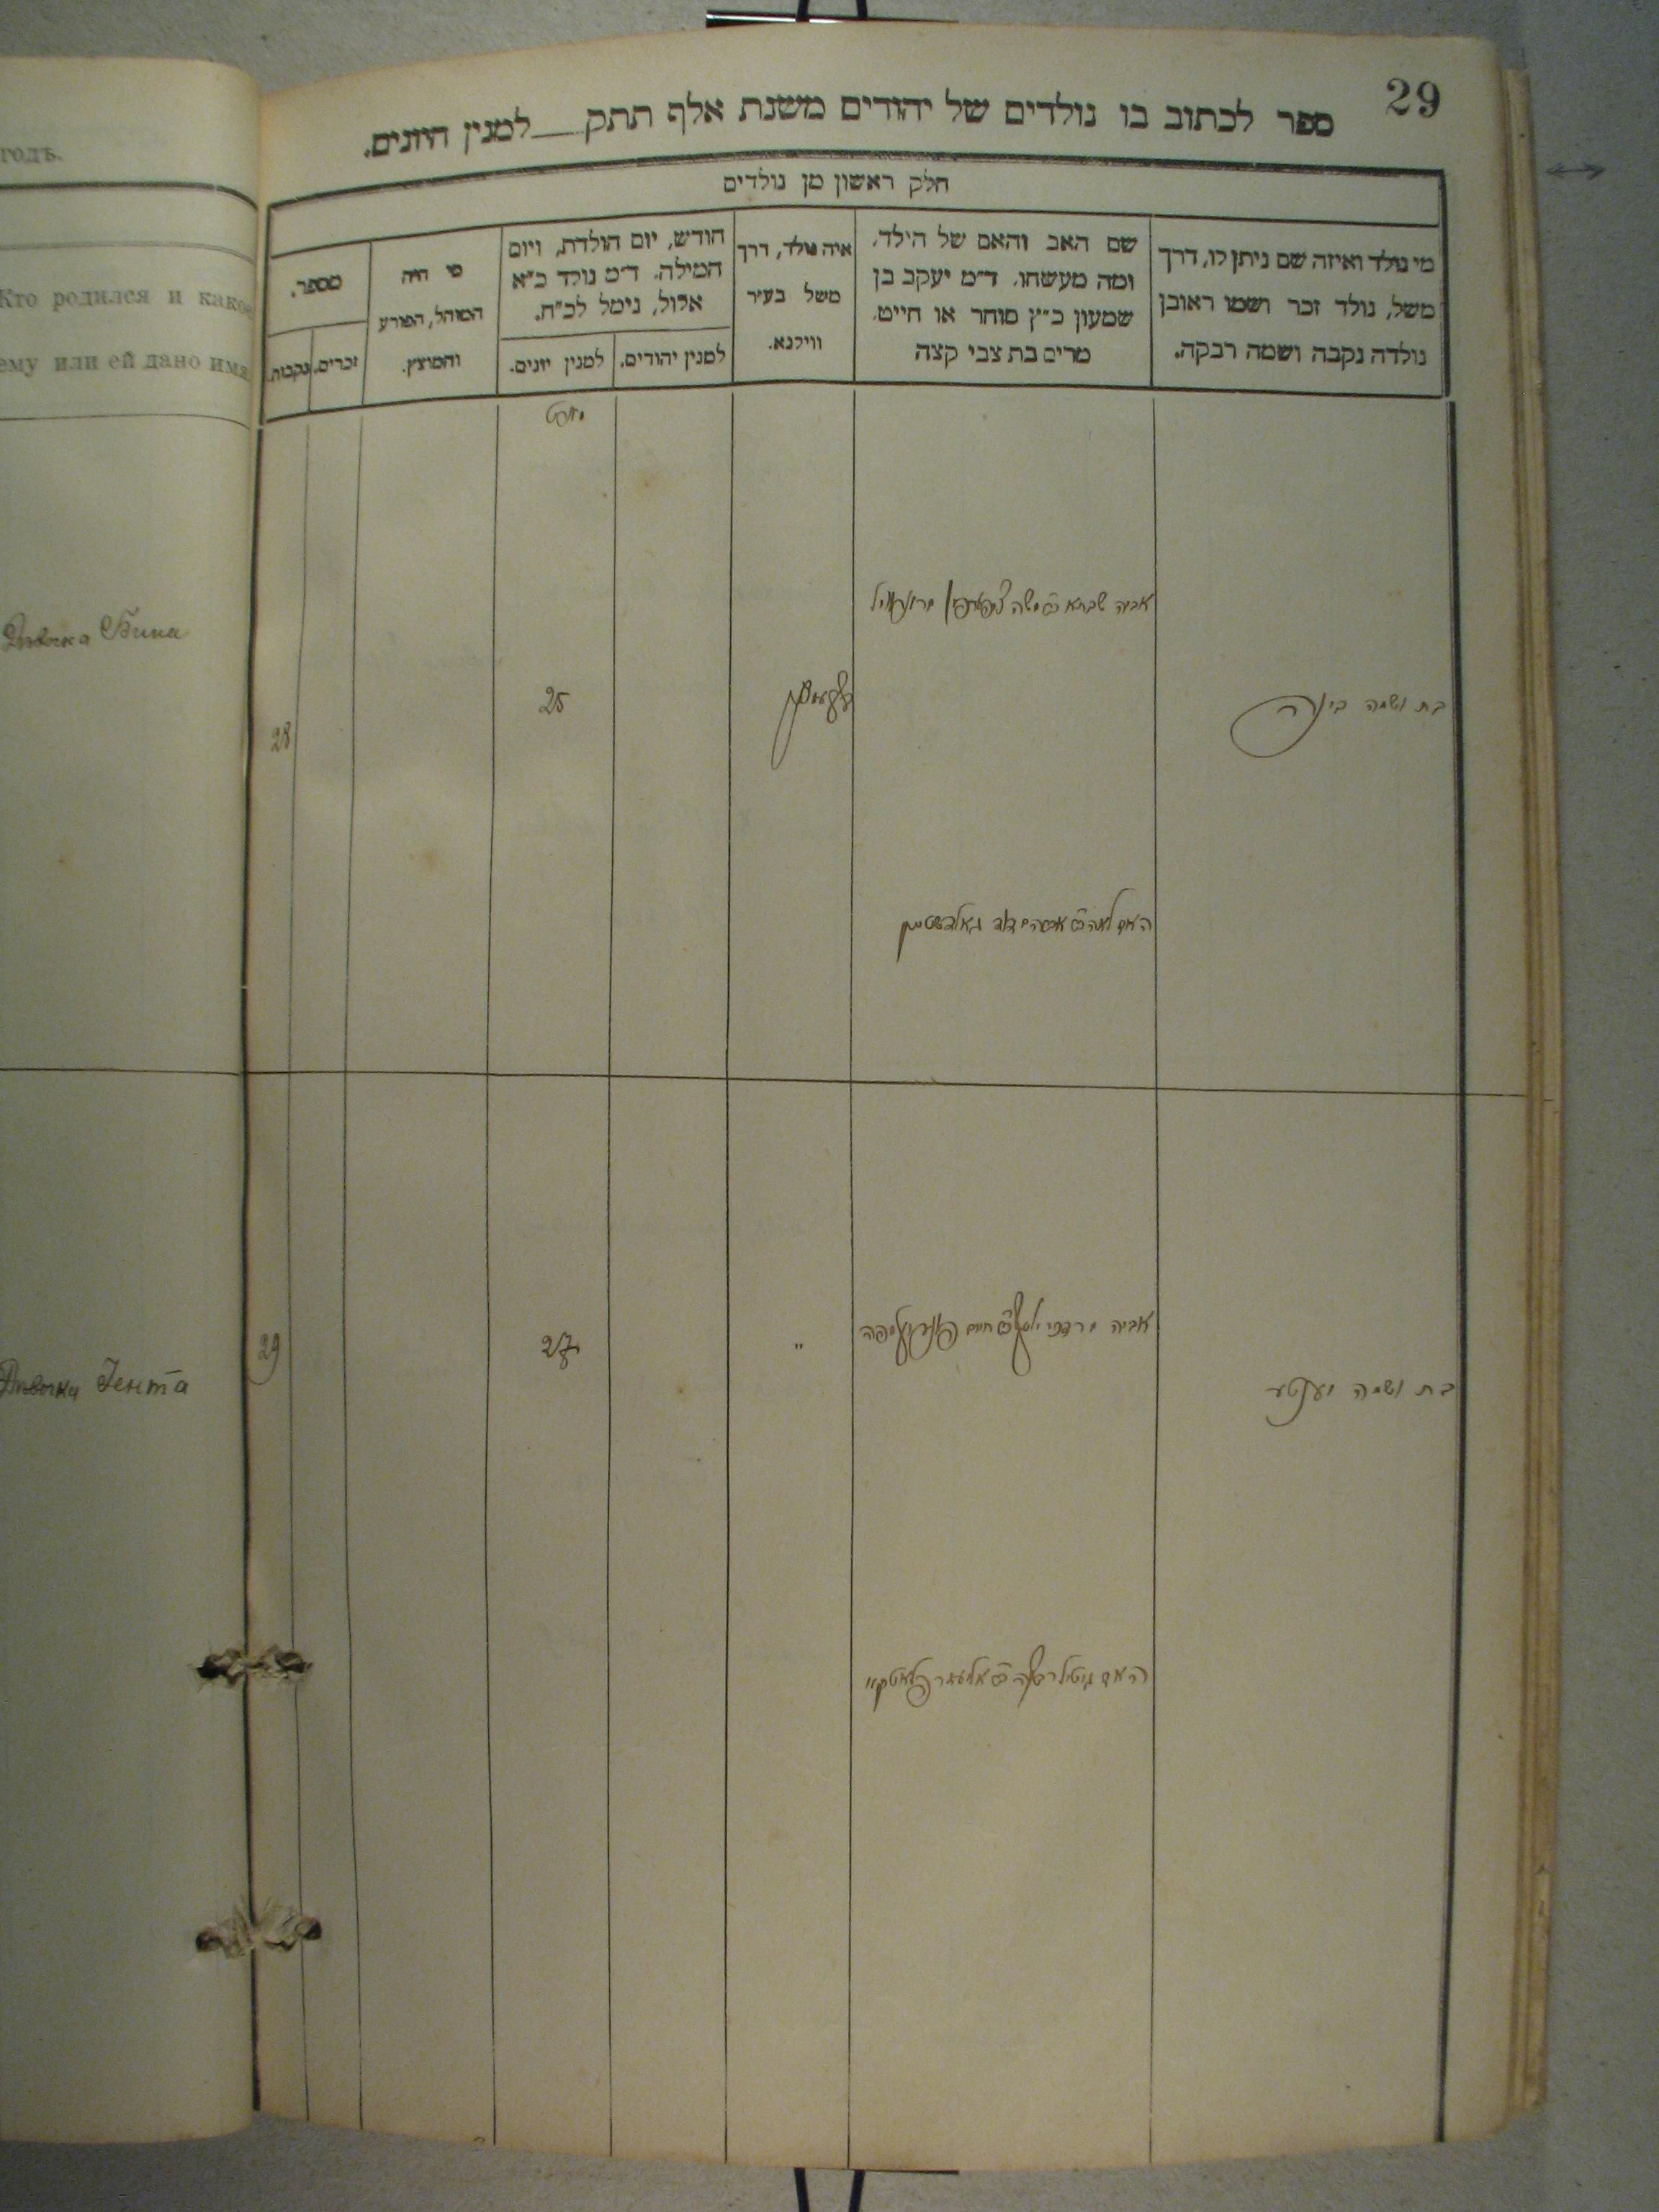 29
ספר לכתוב בו נולדים של יהודים משנת אלף תתק__למנין היונים.
חלק ראשון מן נולדים
מי נולד ואיזה שם ניתן לו, דרך
משל, נולד זכר ושמו ראובן
נולדה נקבה ושמה רבקה.
שם האב והאם של הילד,
ומה מעשהו. ד״מ יעקב בן
שמעון כ״ץ סוחר או חייט,
מרים בת צבי קצה
איה נולד, דרך
משל בעיר
ווילנא.
חודש, יום הולדת, ויום
המילה. ד״מ נולד כ״א
אלול, נימל לכ״ח.
למנין יהודים.
למנין יונים.
מי היה
המוהל, הפורע
והמוצץ.
מספר.
זכרים.
נקבות.
בת ושמה בינה
אביה שבתא משה
האם לאה אברהם דוד גאלדשטיין
25
28
בת ושמה יענטע
אביה מרדכי יוסף חיים
האם גיטל אליעזר
"
27
29
годъ.
Кто родился и какое
ему или ей дано имя
Дѣвочка Бина
Дѣвочка Іента